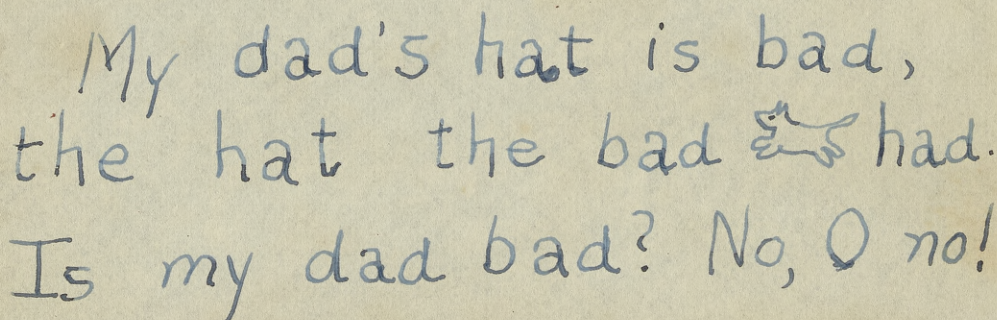 My dad's hat is bad,
the hat the bad had.
Is my dad bad? No, O no!